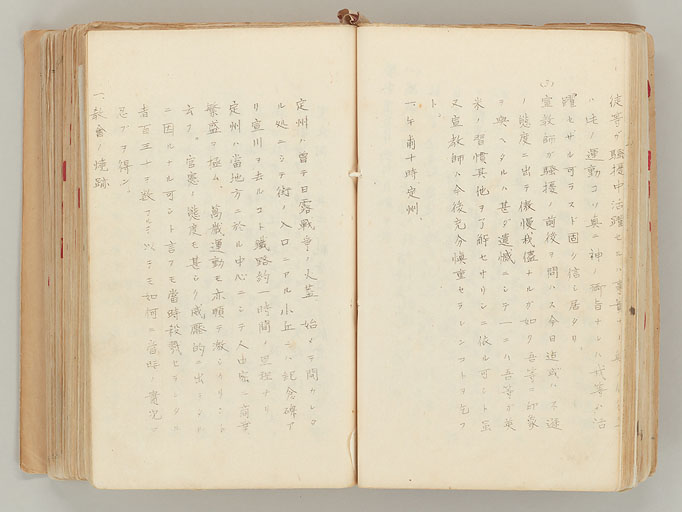 徒等ガ騒擾中活躍セルハ事実
ハ此ノ運動コソ真ニ神ノ御旨ナレハ我等ガ活
躍セザル可ラスト固ク信シ居タリ、
宣教師ガ騒擾ノ前後ヲ問ハス今日迄或ハ不遜
ノ態度ニ出テ傲慢我儘ナルガ如ク吾等ニ印象
ヲ與ヘタルハ甚ダ遺憾ニシテ一ニハ吾等ガ英
米ノ習慣其他ヲ了解セサリシニ依ル可シト雖
又宣教師ハ今後充分慎重セラレンコトヲ乞フ
ト、
一、午前十時定州、
定州ハ曽テ日露戦争ノ火蓋ヲ始メテ開カレタ
ル処ニシテ街ノ入口ニアル小丘ニハ記念碑ア
リ宣川ヲ去ルコト鐵路約一時間ノ里程ナリ、
定州ハ當地方ニ於ル中心ニシテ人口密ニ商業
繁盛ヲ極ム、萬歳運動モ亦頗ヲ激シカリシト
云フ。官憲ノ態度モ甚シク威壓的ニ出シタル
ニ因ルナル可シト言フモ當時殺戮セラレタル
者百三十ヲ数フルヲ以テモ如何ニ當時ノ實況ヲ
忍ブヲ得ン。
一、教會ノ焼跡